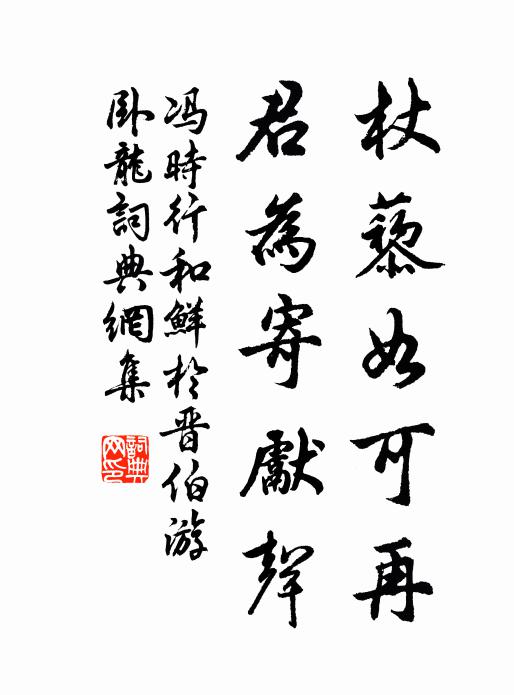 杖藜如可再
君為寄獻聲
冯時行和鮮於晋伯游
卧龍詞典網集
詞典网印